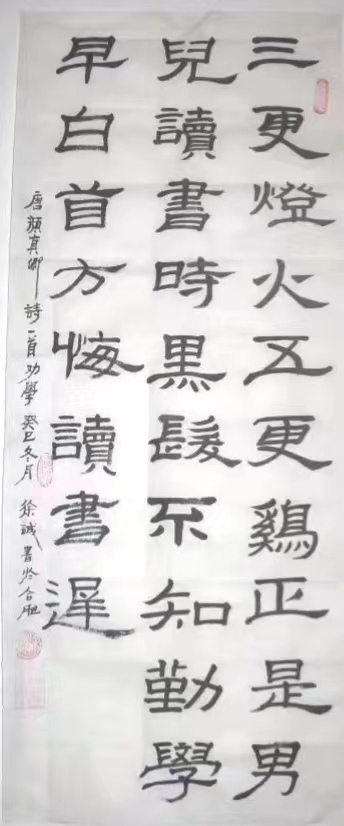 三更燈火五更鷄正是男
兒讀書時黑髮不知勤學
早白首方悔讀書遲
唐顔真卿詩一首勸學癸巳冬月徐誠書於合肥